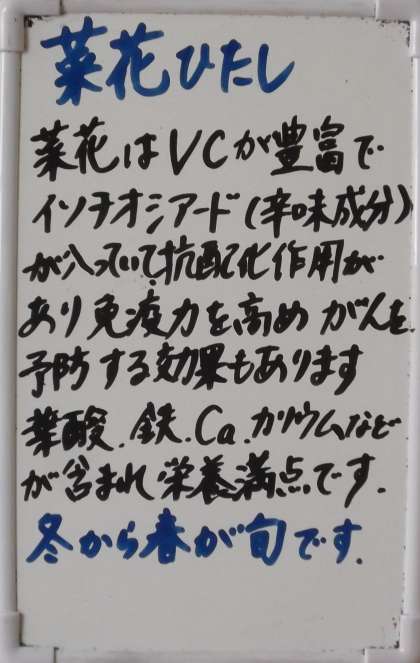 菜花ひたし
菜花はVCが豊富で
イソチオシアード(辛味成分)
が入っていて、抗酸化作用が
あり免疫力を高めがんを
予防する効果もあります
葉酸.鉄.Ca.カリウムなど
が含まれ栄養満点です.
冬から春が旬です.